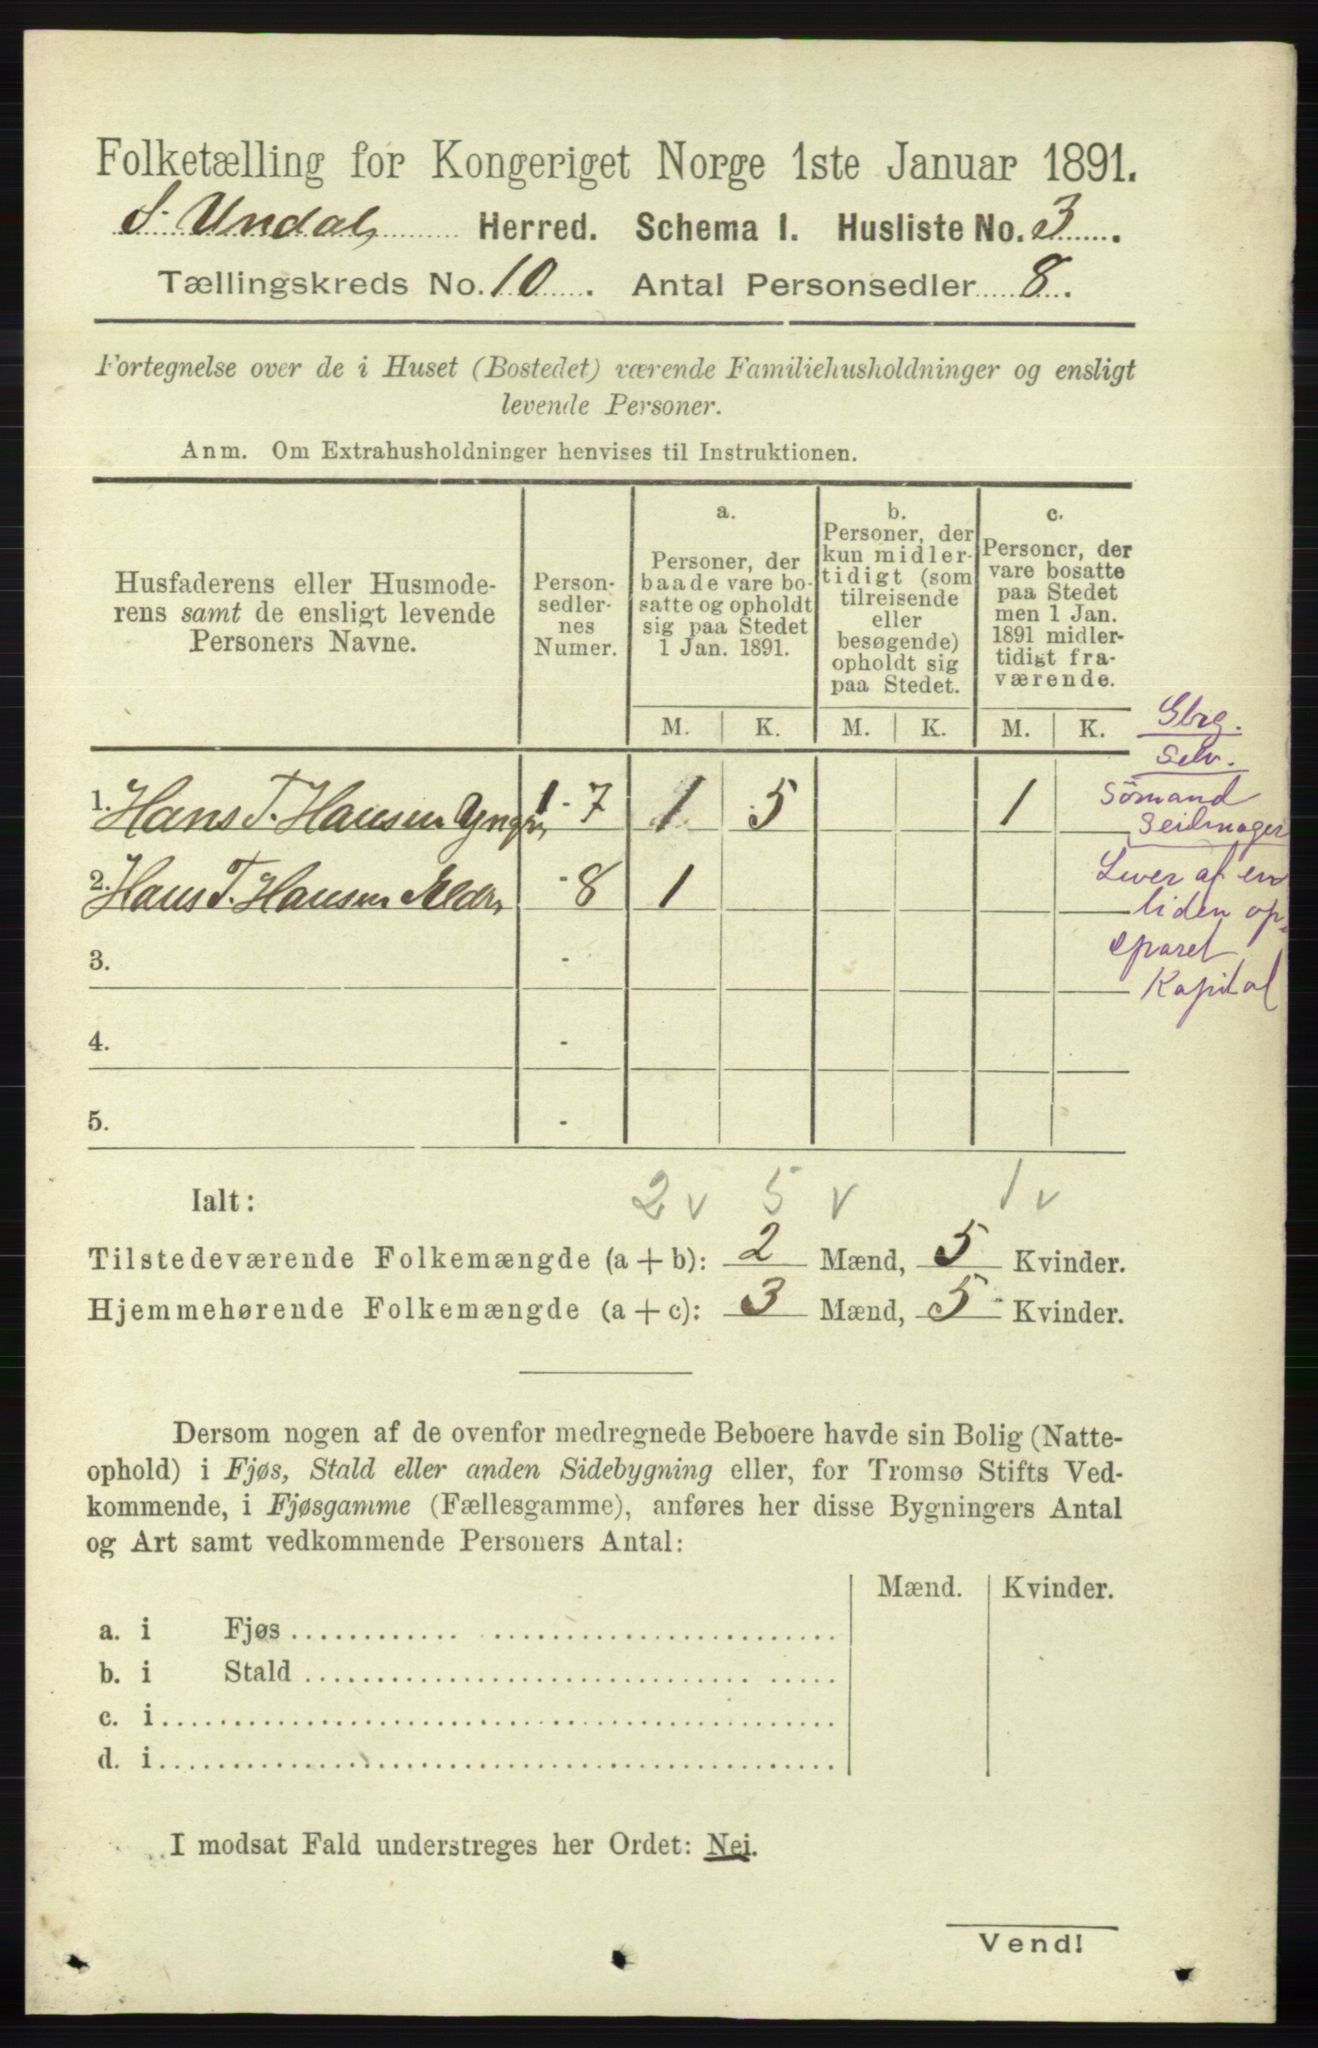 Folketælling for Kongeriget Norge 1ste Januar 1891.
S. Undal Herred. Schema I. Husliste No. 3.
Tællingskreds No. 10. Antal Personsedler 8.
Fortegnelse over de i Huset (Bostedet) værende Familiehusholdninger og ensligt
levende Personer.
Anm. Om Extrahusholdninger henvises til Instruktionen.
Husfaderens eller Husmode-
rens samt de ensligt levende
Personers Navne.
Person-
sedler-
nes
Numer.
a.
Personer, der
baade vare bo-
satte og opholdt
sig paa Stedet
1 Jan. 1891.
b.
Personer, der
kun midler-
tidigt (som
tilreisende
eller
besøgende)
opholdt sig
paa Stedet.
c.
Personer, der
vare bosatte
paa Stedet
men 1 Jan.
1891 midler-
tidigt fra-
værende.
M. K. M. K. M. K.
Gbrg.
Selv.
1. Hans T. Hansen Yngr. 1 - 7 1 5 1
Sömand
Seilmager
2. Hans T. Hansen Aldr. - 8 1
Lever af en
liden op-
sparet
Kapital
3. -
4. -
5. -
Ialt: 2 v 5 v 1 v
Tilstedeværende Folkemængde (a + b): 2 Mænd, 5 Kvinder.
Hjemmehørende Folkemængde (a + c): 3 Mænd, 5 Kvinder.
Dersom nogen af de ovenfor medregnede Beboere havde sin Bolig (Natte-
ophold) i Fjøs, Stald eller anden Sidebygning eller, for Tromsø Stifts Ved-
kommende, i Fjøsgamme (Fællesgamme), anføres her disse Bygningers Antal
og Art samt vedkommende Personers Antal:
Mænd. Kvinder.
a. i Fjøs
b. i Stald
c. i
d. i
I modsat Fald understreges her Ordet: Nei.
Vend!